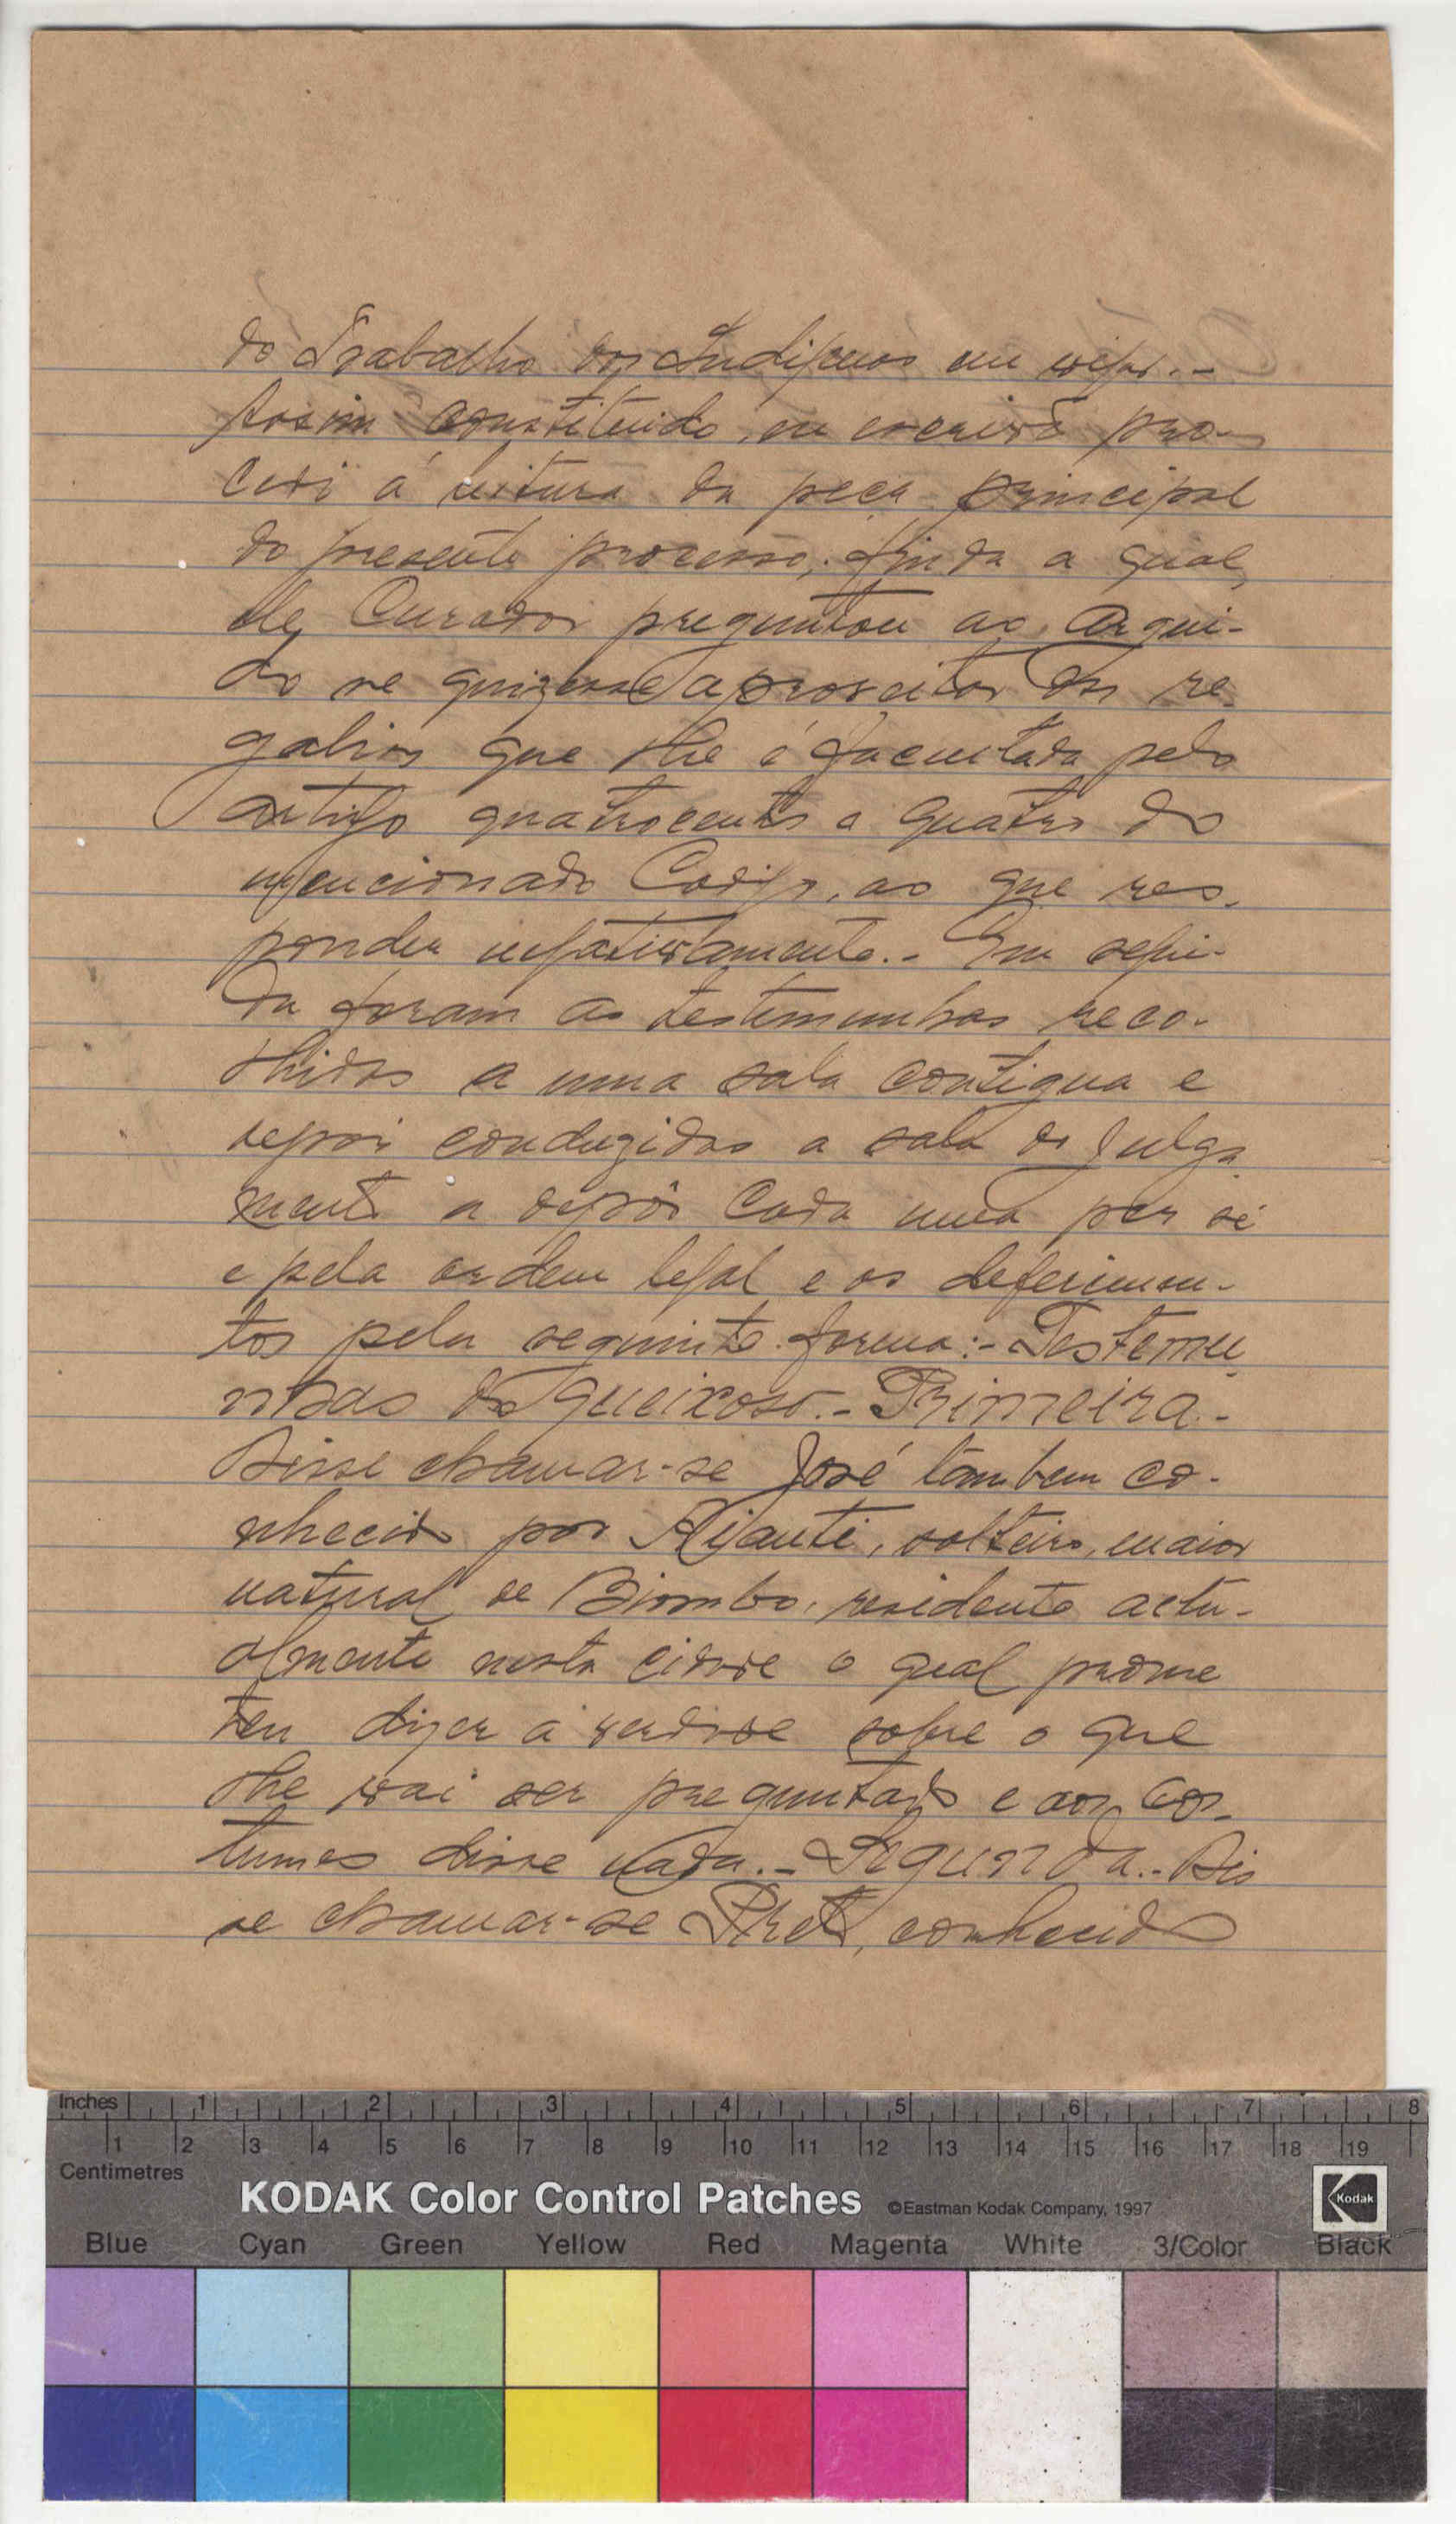 do Trabalho dos Indigenas em vigor.-
Assim constituido, eu escrivã pro-
cedi á leitura da peça principal
do presente processo, finda a qual,
ele Curador preguntou ao argui-
do se quizesse aproveitar das re-
galias que lhe é facultada pelo
artigo quatrocentos e quatro do
mencionado Codigo, ao que res-
pondeu negativamente.- Em segui-
da foram as testemunhas reco-
lhidas a uma sala contigua e
depois conduzidas a sala de julga
mento a depôr cada uma per sé
e pela ordem legal e os deferimen-
tos pela seguinte forma:- Testemu
nhas do queixoso.- Primeira.-
Disse chamar-se José tambem co-
nhecido por, solteiro, maior
natural de Biombo, residente actu-
almente nesta cidade o qual prome
teu dizer a verdade sobre o que
lhe vai ser preguntado e aos cos-
tumes disse nada.- Segunda.- Dis
se chamar-se, conhecido
Inches 1 2 3 4 5 6 7 8
1 2 3 4 5 6 7 8 9 10 11 12 13 14 15 16 17 18 19
Centimetres
KODAK Color Control Patches ©Eastman Kodak Company, 1997 Kodak
Blue Cyan Green Yellow Red Magenta White 3/Color Black